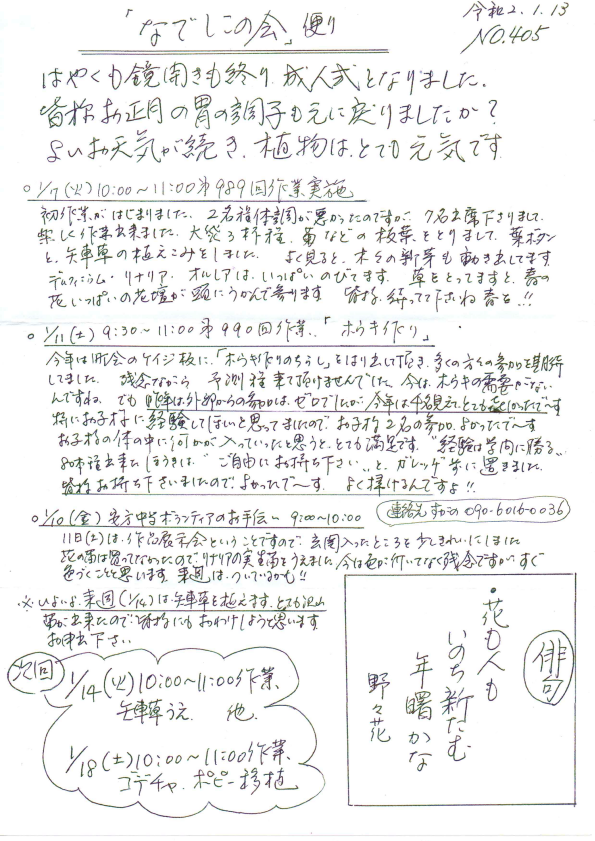 「なでしこの会」便り
令和2.1.13
NO.405
はやくも鏡開きも終り、成人式となりました。
皆様お正月の胃の調子も元に戻りましたか?
よいお天気が続き、植物は、とても元気です
○ 1/7(火)10:00~11:00 第989回作業実施
初作業がはじまりました。2名程体調が悪かったのですが、7名出席下さりまして、
楽しく作業出来ました。大袋3杯程、菊などの枝葉をとりまして、葉ボタン
と、矢車草の植えこみをしました。よく見ると、木々の新芽も動き出してます
デルフィニウム・リナリア、オルレアは、いっぱいのびてます。草をとってますと、春の
花いっぱいの花壇が頭にうかんで参ります 皆様、待ってて下さいね春を!!
○ 1/11(土)9:30~11:00 第990回作業、「ホウキ作り」
今年は町会のケイジ板に、「ホウキ作りのちらし」をはり出して頂き、多くの方々の参加を期待
してました。残念ながら 予測程来て頂けませんでした。今は、ホウキの需要がない
んですね。でも昨年は外部からの参加は、ゼロでしたが、今年は4名見えてとても嬉しかったで~す
特にお子様に経験してほしいと思ってましたのでお子様2名の参加、よかったで~す
お子様の体の中に何かが入っていったと思うと、とても満足です。"経験は学問に勝る"
80本程出来たほうきは、"ご自由にお持ち下さい"と、ガレッヂ等に置きました。
皆様お持ち下さいましたので、よかったで~す。よく掃けるんですよ!!
○ 1/10(金)宮方中学ボランティアのお手伝い 9:00~10:00
連絡先 すがの 090-6016-0036
11日(土)は、作品展示会ということですので、玄関入ったところを少しきれいにしました
花の苗は買ってなかったので、リナリアの実生苗をうえました。今は色が付いてなく残念ですが、すぐ
色づくことと思います。来週は、ついているかも!!
※いよいよ、来週(1/14)は、矢車草を植えます。とても沢山
苗が出来たので、皆様にもおわけしようと思います。
お申出下さい
次回
1/14(火)10:00~11:00作業、
矢車草うえ 他、
1/18(土)10:00~11:00作業、
ゴデチャ、ポピー移植
俳句
・花も人も
いのち新たむ
年曙かな
野々花